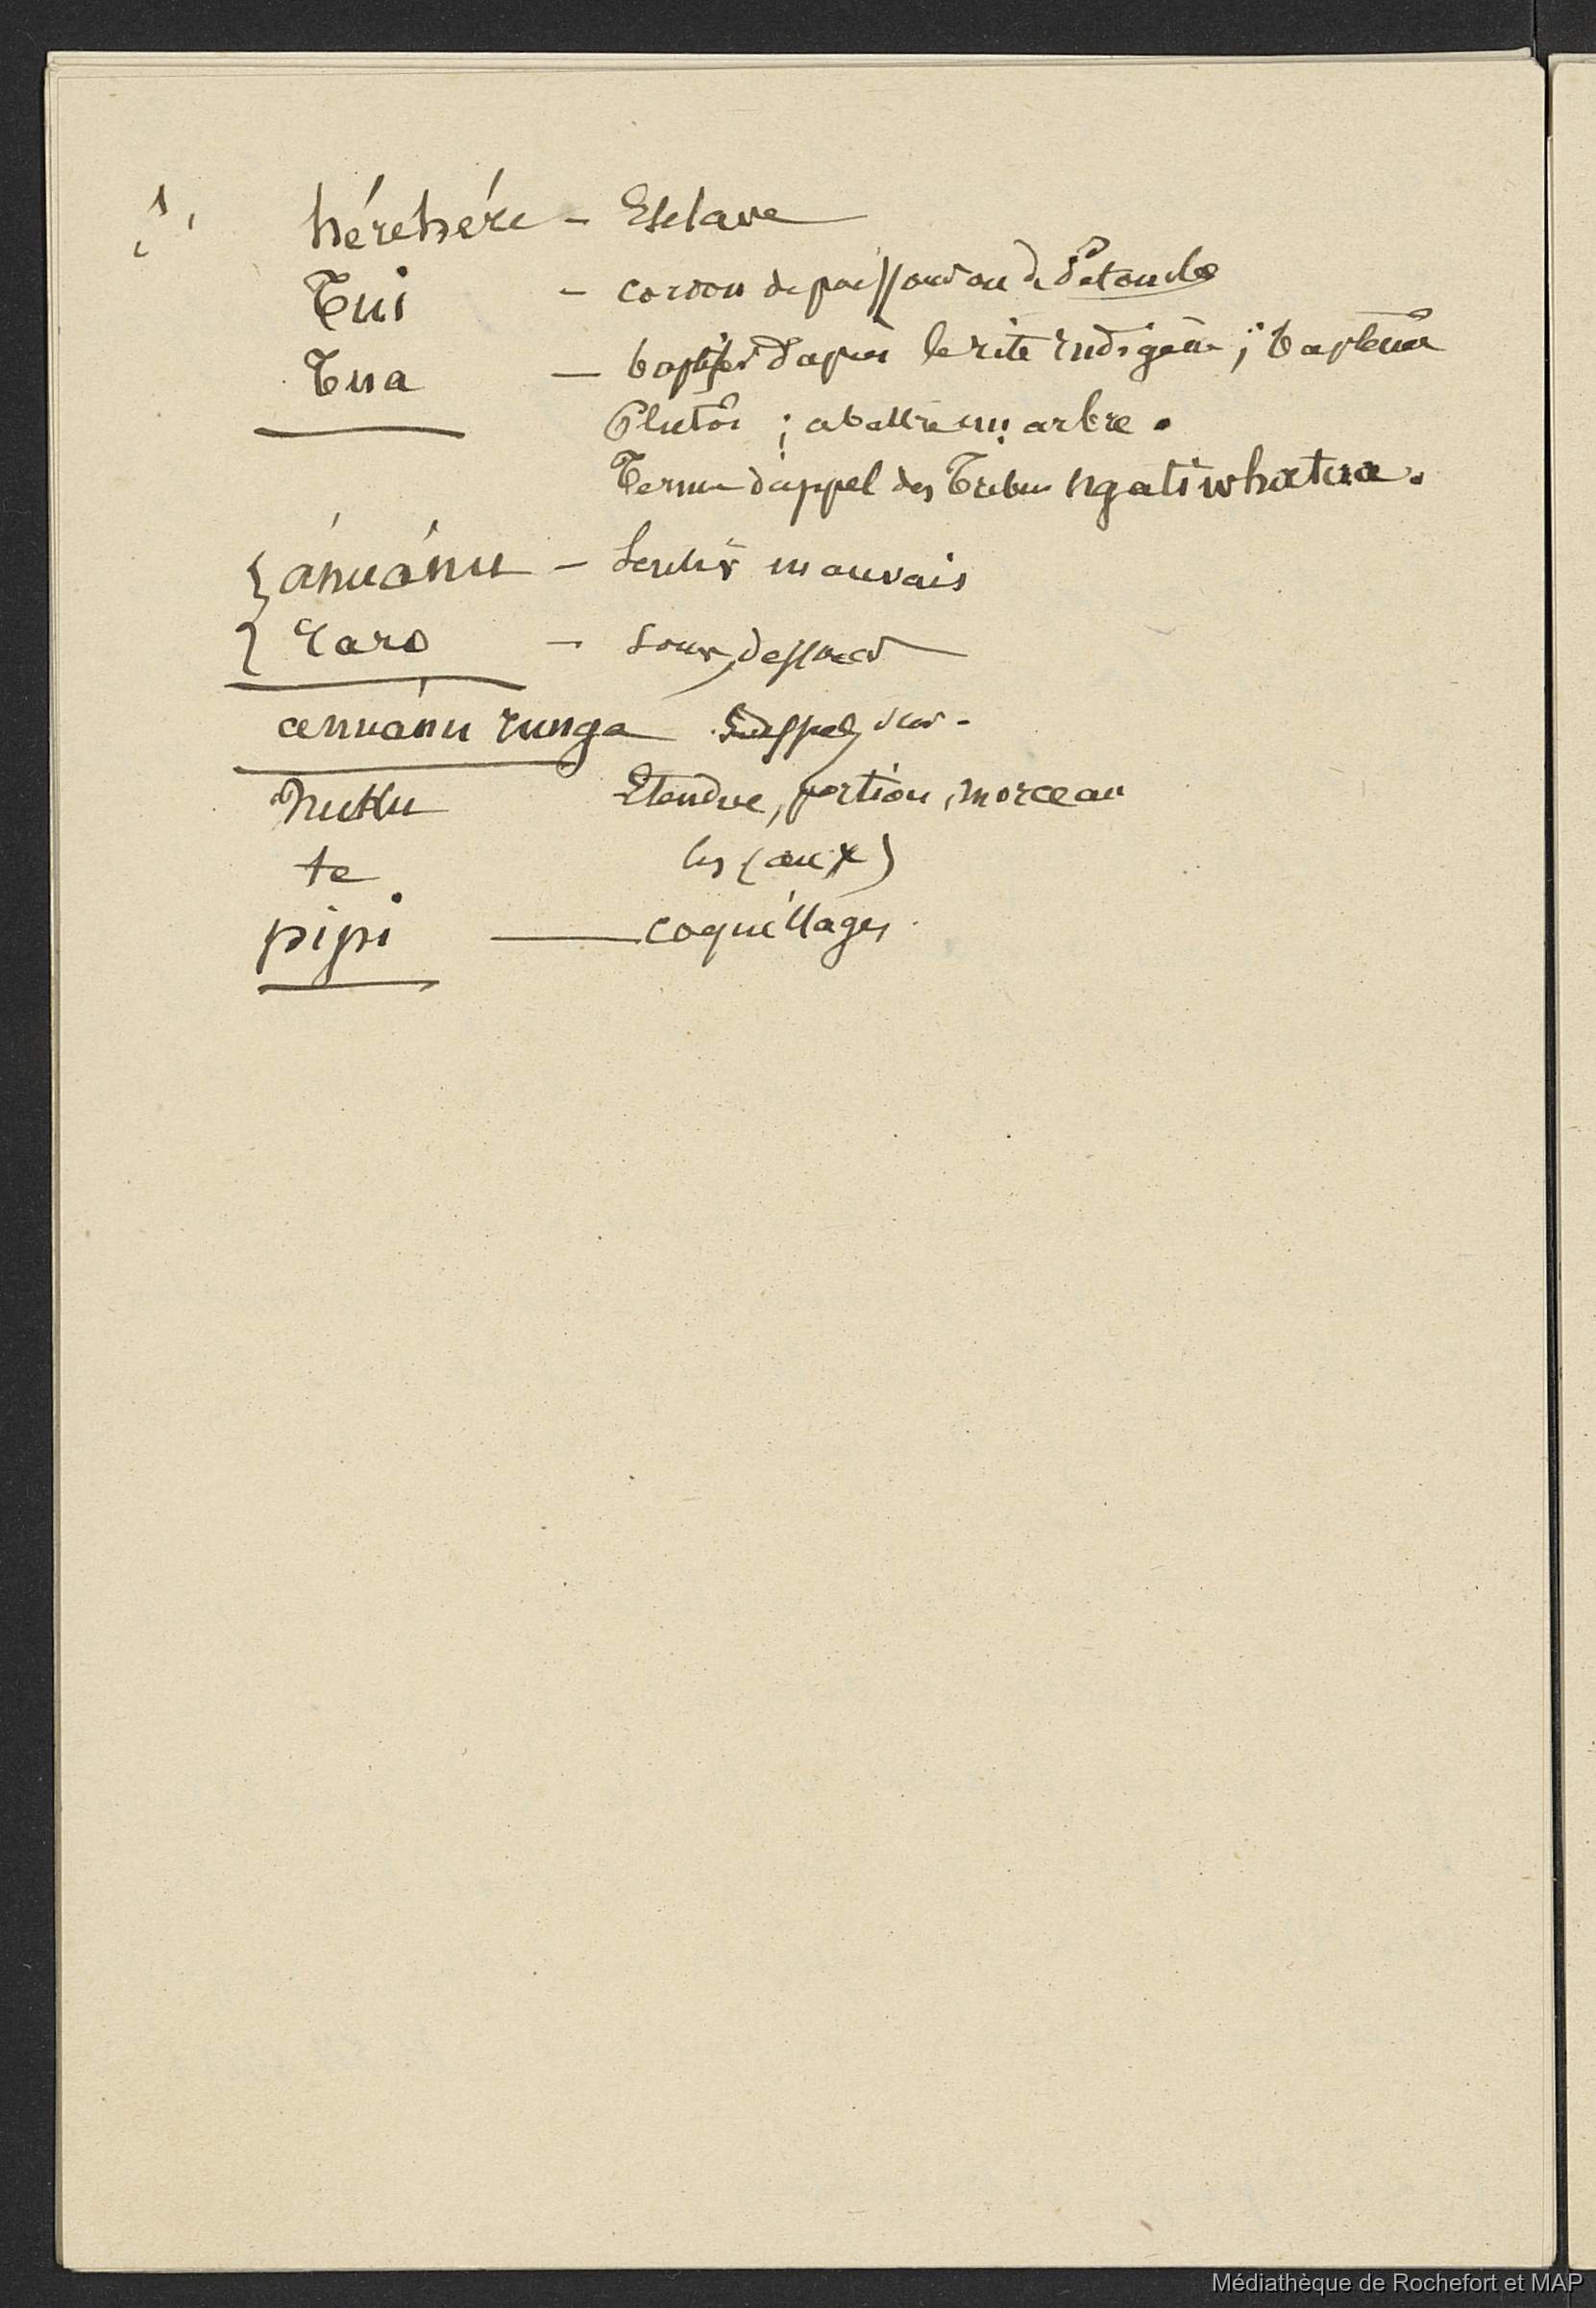 hérehére - Esclave
Tui - cordon de poissons ou de Patoucles
Tua — baptiser d'après le rite indigène ; baptême
Plutôt ; abattre un arbre.
Terme d'appel des Tribus ngatiwhatua.
{ ánuánu - Sentir mauvais
} raro - sous, dessous
anuánu runga sur -
nuku Etendue, portion, morceau
te les (aux)
pipi — coquillages
Médiathèque de Rochefort et MAP